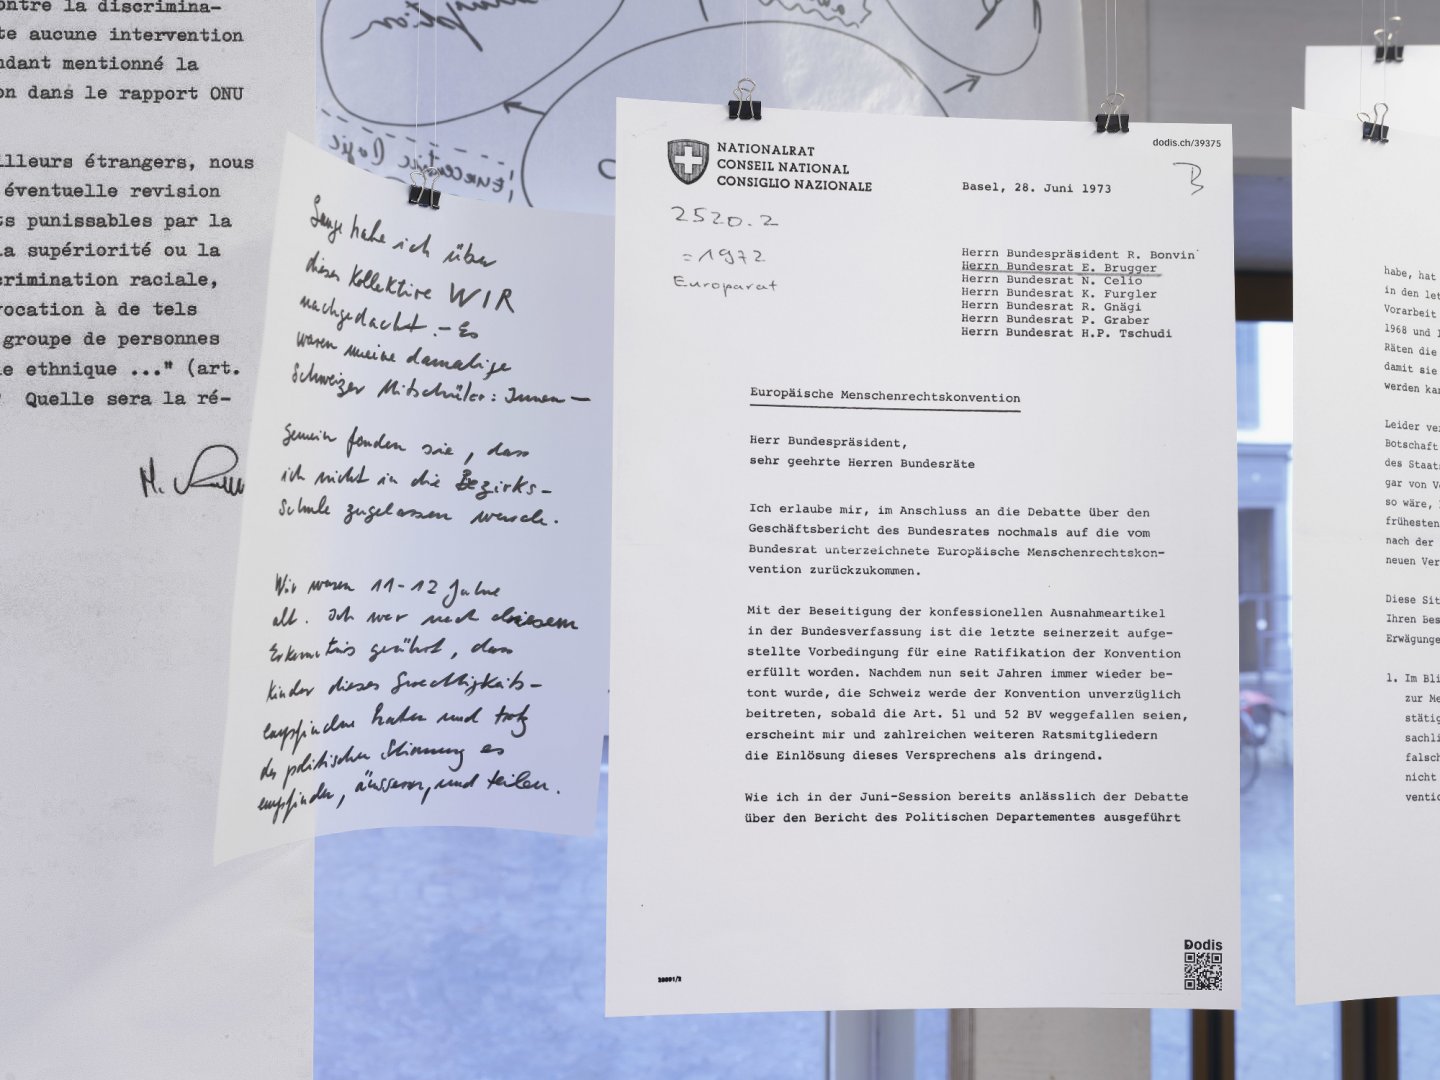 ontre la discrimina-
te aucune intervention
ndant mentionné la
on dans le rapport ONU
illeurs étrangers, nous
éventuelle revision
ts punissables par la
la supériorité ou la
crimination raciale,
vocation à de tels
groupe de personnes
e ethnique ..." (art.
Quelle sera la ré-
Lange habe ich über
dieses Kollektive WIR
nachgedacht. – Es
waren meine damalige
Schweizer Mitschüler:Innen –
Gemein fanden sie, dass
ich nicht in die Bezirks-
schule zugelassen werde.
Wir waren 11-12 Jahre
alt. Ich war nach diesem
Erkenntnis gerührt, dass
Kinder dieses Gerechtigkeits-
empfinden haben und trotz
der politischen Stimmung es
empfinden, äussern, und teilen.
NATIONALRAT
CONSEIL NATIONAL
CONSIGLIO NAZIONALE
dodis.ch/39375
B
Basel, 28. Juni 1973
2520.2
=1972
Europarat
Herrn Bundespräsident R. Bonvin
Herrn Bundesrat E. Brugger
Herrn Bundesrat N. Celio
Herrn Bundesrat K. Furgler
Herrn Bundesrat R. Gnägi
Herrn Bundesrat P. Graber
Herrn Bundesrat H.P. Tschudi
Europäische Menschenrechtskonvention
Herr Bundespräsident,
sehr geehrte Herren Bundesräte
Ich erlaube mir, im Anschluss an die Debatte über den
Geschäftsbericht des Bundesrates nochmals auf die vom
Bundesrat unterzeichnete Europäische Menschenrechtskon-
vention zurückzukommen.
Mit der Beseitigung der konfessionellen Ausnahmeartikel
in der Bundesverfassung ist die letzte seinerzeit aufge-
stellte Vorbedingung für eine Ratifikation der Konvention
erfüllt worden. Nachdem nun seit Jahren immer wieder be-
tont wurde, die Schweiz werde der Konvention unverzüglich
beitreten, sobald die Art. 51 und 52 BV weggefallen seien,
erscheint mir und zahlreichen weiteren Ratsmitgliedern
die Einlösung dieses Versprechens als dringend.
Wie ich in der Juni-Session bereits anlässlich der Debatte
über den Bericht des Politischen Departementes ausgeführt
Dodis
habe, hat
in den let
Vorarbeit
1968 und 1
Räten die
damit sie
werden kan
Leider ver
Botschaft
des Staats
gar von Ve
so wäre,
frühesten
nach der
neuen Ver
Diese Sit
Ihren Bes
Erwägunge
1. Im Bli
zur Me
stätig
sachli
falsch
nicht
ventio